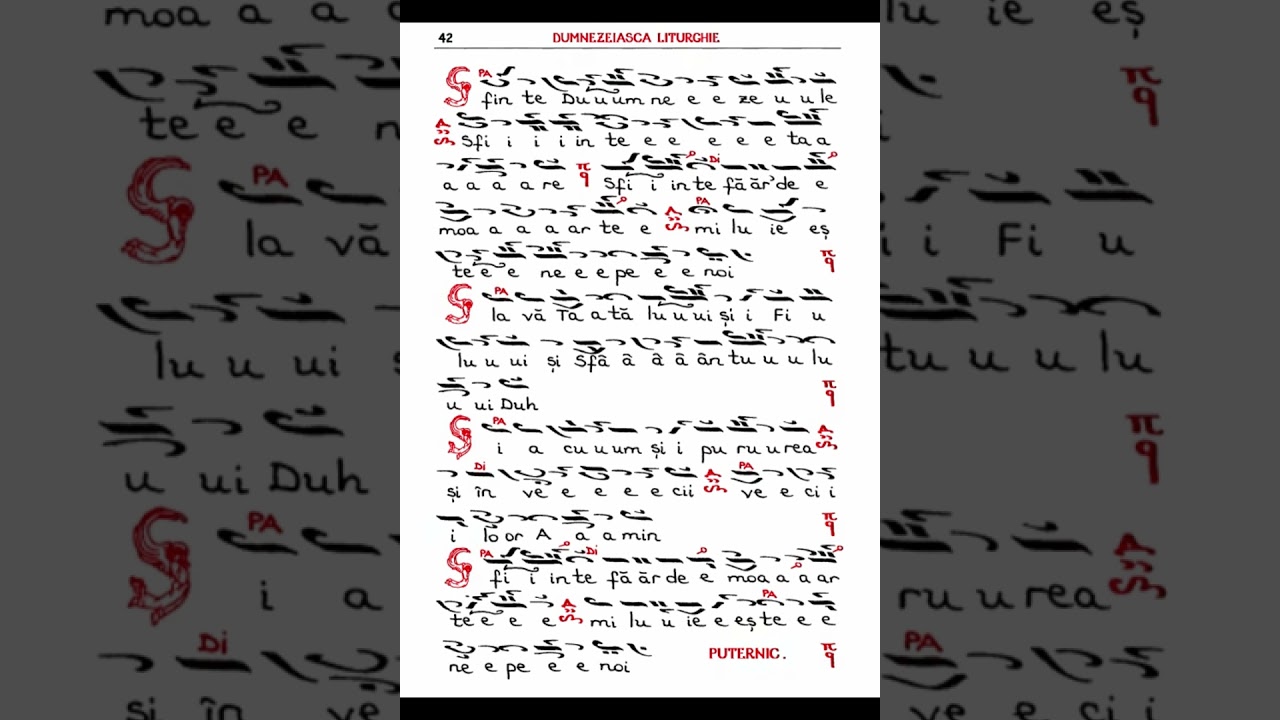 42 DUMNEZEIASCA LITURGHIE
PA
S fin te Du u um ne e e ze u u le
Sfi i i i in te e e e e e ta a
a a a a re π q Sfi i in te fă ăr' de e
Di
moa a a a ar te e mi lu ie eș
PA
te e e ne e e pe e e noi π q
S la vă Ta a tă lu u ui și i Fi u
PA
lu u ui și Sfâ â â â ân tu u u lu
u ui Duh π q
S i a cu u um și i pu ru u rea
PA
și în ve e e e e cii ve e ci i
Di PA
i lo or A a a min π q
S fi i in te fă ăr de e moa a a ar
PA Di
te e e e mi lu u ie e eș te e e
PA
ne e pe e e noi PUTERNIC. π q